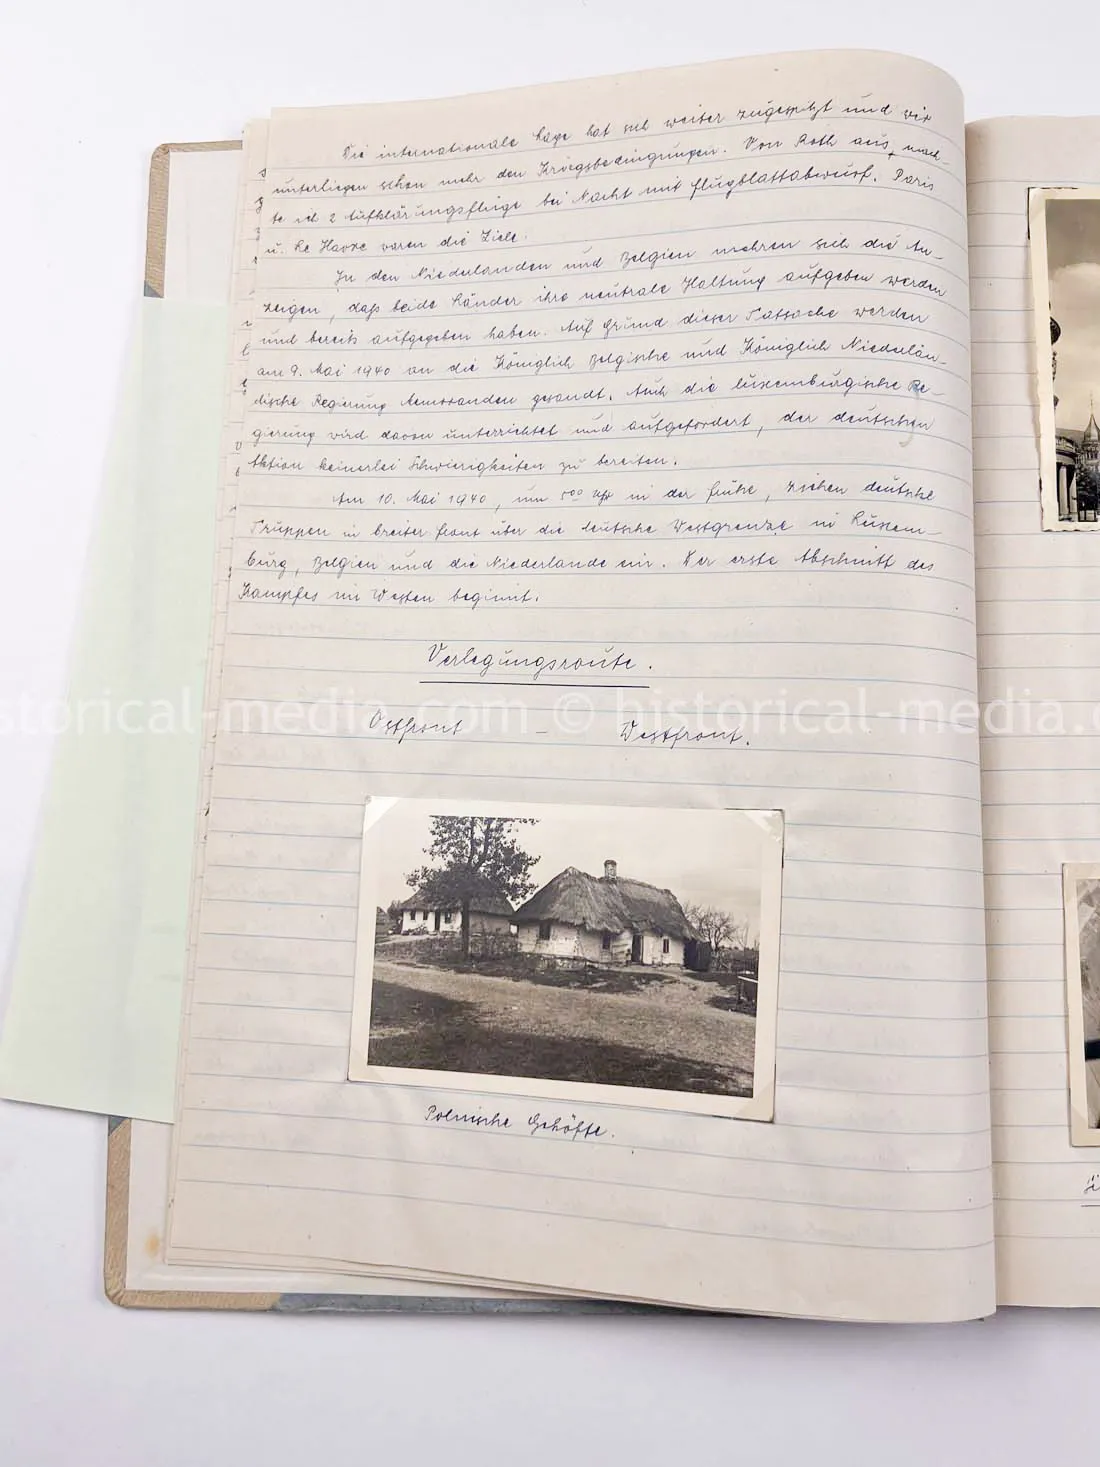 Die internationale Lage hat sich weiter zugespitzt und wir
unterliegen schon mehr den Kriegsbedingungen. Von Roth aus, mach-
te ich 2 Aufklärungsflüge bei Nacht mit Flugblattabwurf. Paris
u. Le Havre waren die Ziele.
In den Niederlanden und Belgien mehren sich die An-
zeigen, daß beide Länder ihre neutrale Haltung aufgeben werden
und bereits aufgegeben haben. Auf Grund dieser Tatsache werden
am 9. Mai 1940 an die Königlich Belgische und Königlich Niederlän-
dische Regierung Memoranden gesandt. Auch die luxemburgische Re-
gierung wird davon unterrichtet und aufgefordert, der deutschen
Aktion keinerlei Schwierigkeiten zu bereiten.
Am 10. Mai 1940, um 5⁰⁰ Uhr in der Frühe, ziehen deutsche
Truppen in breiter Front über die deutsche Westgrenze in Luxem-
burg, Belgien und die Niederlande ein. Der erste Abschnitt des
Kampfes im Westen beginnt.
Verlegungsroute.
Ostfront – Westfront.
historical-media.com © historical-media
Polnische Gehöfte.